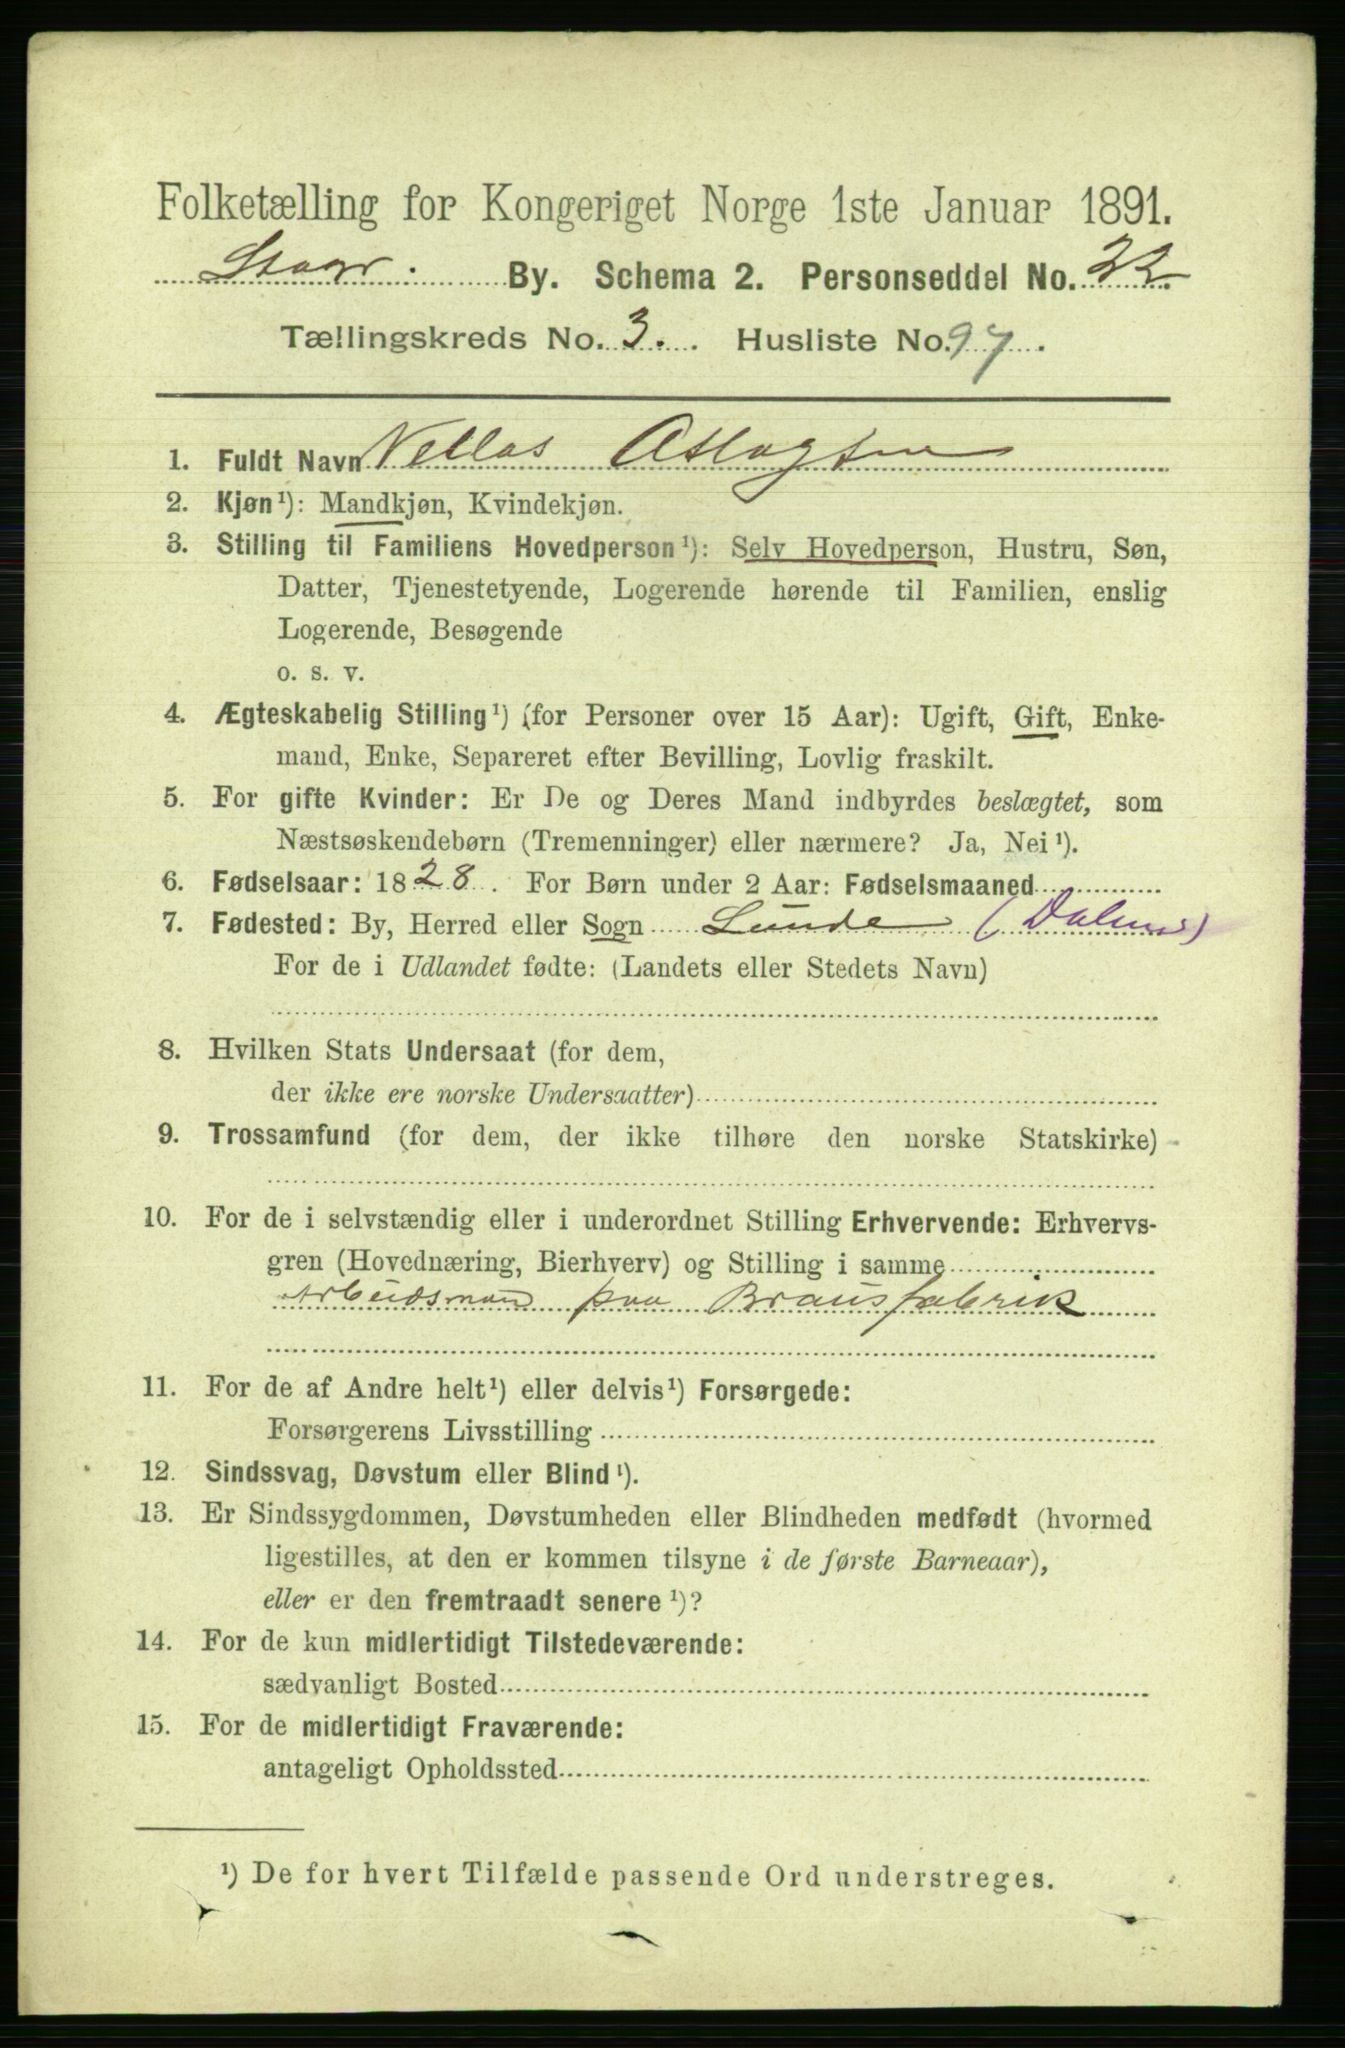 Folketælling for Kongeriget Norge 1ste Januar 1891.
By. Schema 2. Personseddel No. 22
Tællingskreds No. 3. Husliste No. 97.
1. Fuldt Navn Nellas Aslagsen
2. Kjøn¹): Mandkjøn, Kvindekjøn.
3. Stilling til Familiens Hovedperson¹): Selv Hovedperson, Hustru, Søn,
Datter, Tjenestetyende, Logerende hørende til Familien, enslig
Logerende, Besøgende
o. s. v.
4. Ægteskabelig Stilling¹) (for Personer over 15 Aar): Ugift, Gift, Enke-
mand, Enke, Separeret efter Bevilling, Lovlig fraskilt.
5. For gifte Kvinder: Er De og Deres Mand indbyrdes beslægtet, som
Næstsøskendebørn (Tremenninger) eller nærmere? Ja, Nei¹).
6. Fødselsaar: 1828. For Børn under 2 Aar: Fødselsmaaned
7. Fødested: By, Herred eller Sogn Lunde (Dalene)
For de i Udlandet fødte: (Landets eller Stedets Navn)
8. Hvilken Stats Undersaat (for dem,
der ikke ere norske Undersaatter)
9. Trossamfund (for dem, der ikke tilhøre den norske Statskirke)
10. For de i selvstændig eller i underordnet Stilling Erhvervende: Erhvervs-
gren (Hovednæring, Bierhverv) og Stilling i samme
Arbeidsmand paa Brausfabrik
11. For de af Andre helt¹) eller delvis¹) Forsørgede:
Forsørgerens Livsstilling
12. Sindssvag, Døvstum eller Blind¹).
13. Er Sindssygdommen, Døvstumheden eller Blindheden medfødt (hvormed
ligestilles, at den er kommen tilsyne i de første Barneaar),
eller er den fremtraadt senere¹)?
14. For de kun midlertidigt Tilstedeværende:
sædvanligt Bosted
15. For de midlertidigt Fraværende:
antageligt Opholdssted
¹) De for hvert Tilfælde passende Ord understreges.